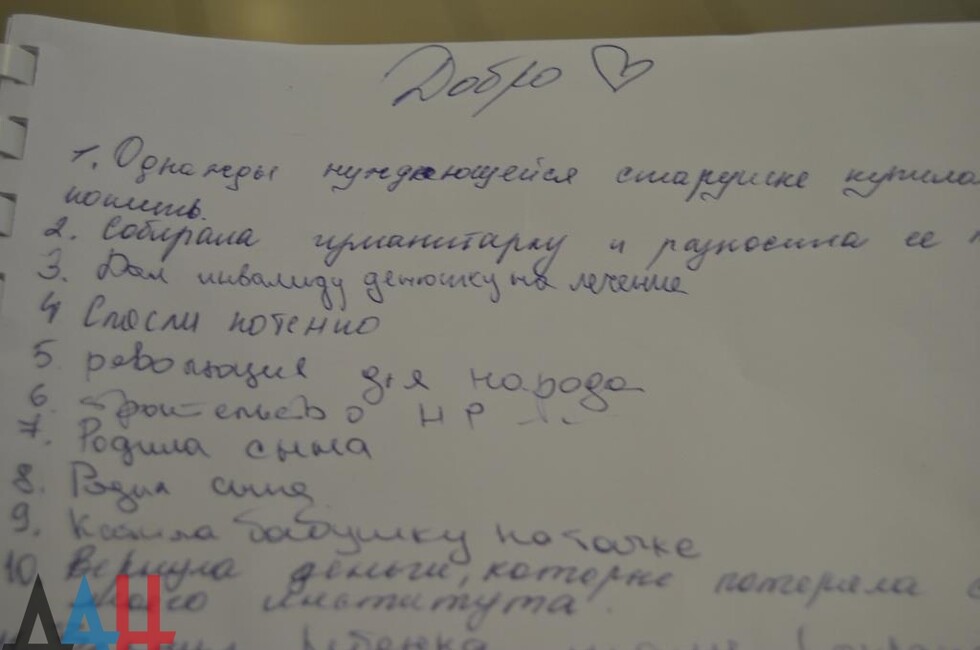 Добро
1. Однажды нуждающейся старушке купила
попить.
2. Собирала гуманитарку и разносила ее
3. Дал инвалиду денюшку на лечение
4 Спасли котенко
5. революция для народа
6. Строительство Н Р
7. Родила сына
8. Родил сына
9. Катила бабушку на тачке
10 Вернула деньги, которые потеряла
моего института.
ДАН